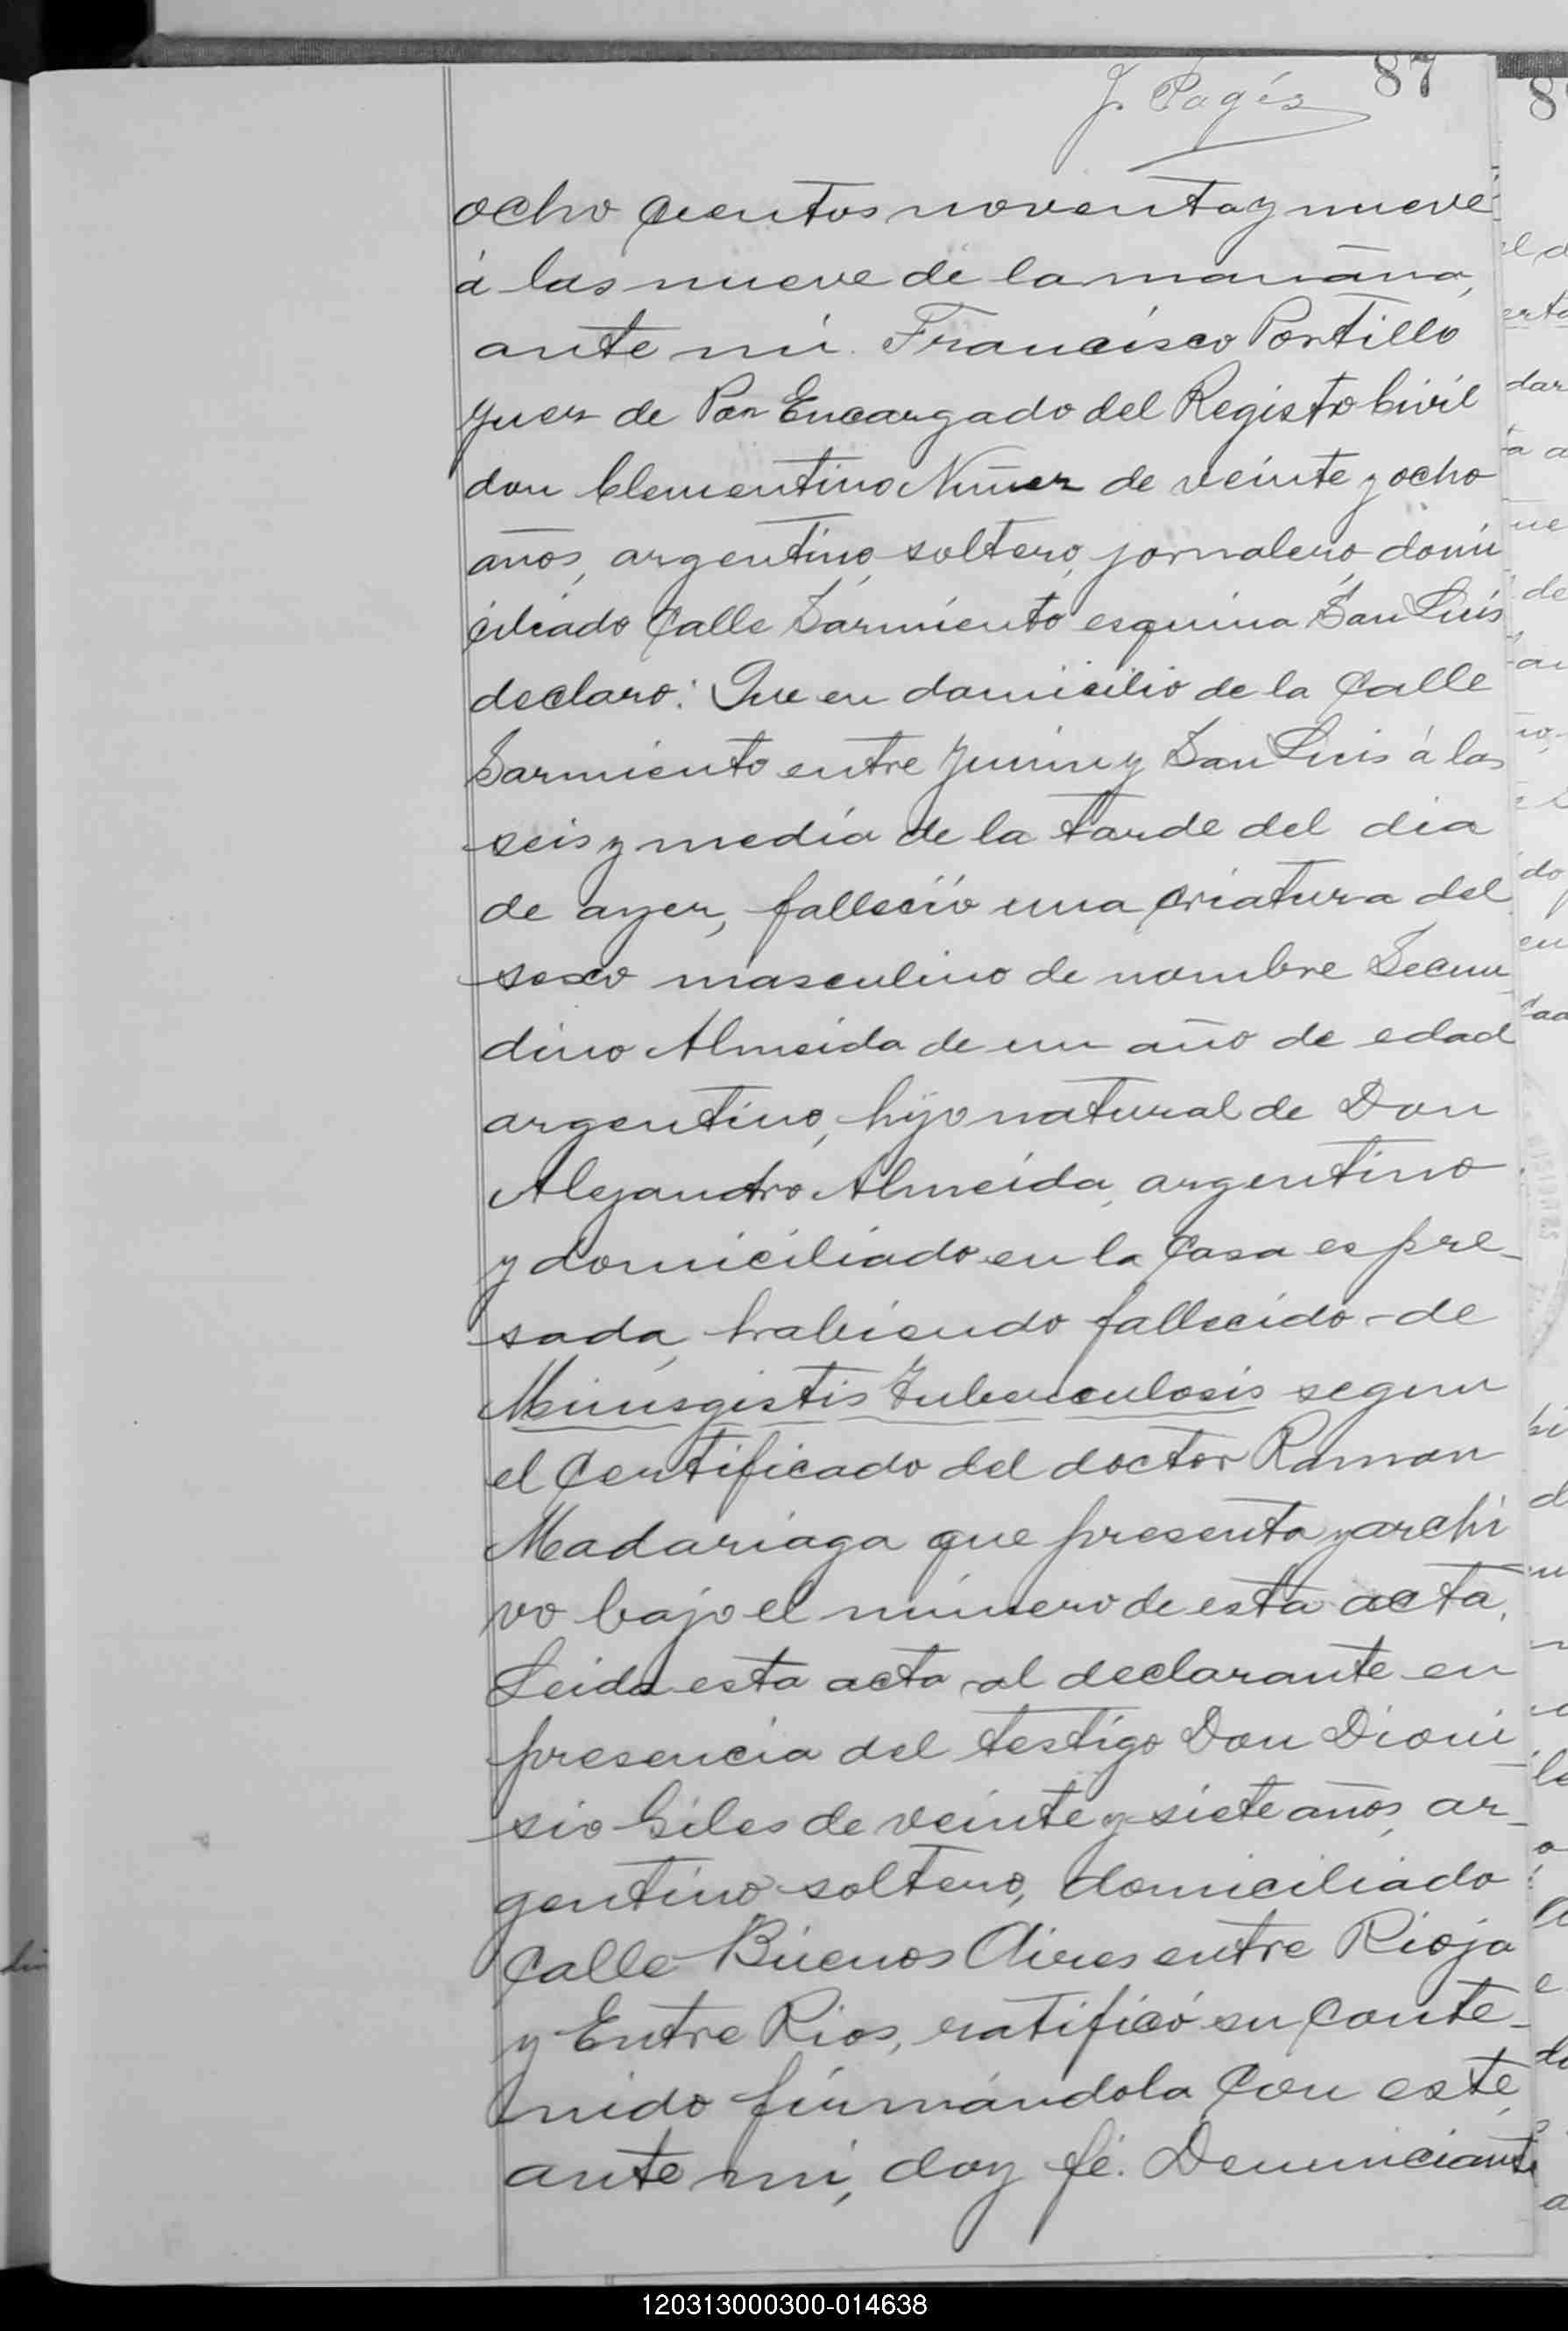 J. Pagés 87
ocho cientos noventa y nueve
á las nueve de la mañana,
ante mi Francisco Portillo
Juez de Paz Encargado del Registro Civil
don Clementino Nuñez de veinte y ocho
años, argentino, soltero, jornalero, domi
ciliado Calle Sarmiento esquina San Luis
declaro: Que en domicilio de la Calle
Sarmiento entre Junin y San Luis á las
seis y media de la tarde del dia
de ayer, falleció una criatura del
sexo masculino de nombre Secun
dino Almeida de un año de edad
argentino, hijo natural de Don
Alejandro Almeida, argentino
y domiciliado en la Casa espre-
sada, habiendo fallecido de
Minusgistis Tuberculosis segun
el Certificado del doctor Ramon
Madariaga que presenta y archi
vo bajo el número de esta acta.
Leida esta acta al declarante en
presencia del testigo Don Dioni
sio Giles de veinte y siete años, ar-
gentino soltero, domiciliado
Calle Buenos Aires entre Rioja
y Entre Rios, ratificó su Conte-
nido firmándola Con este,
ante mi, doy fé. Denunciante
120313000300-014638